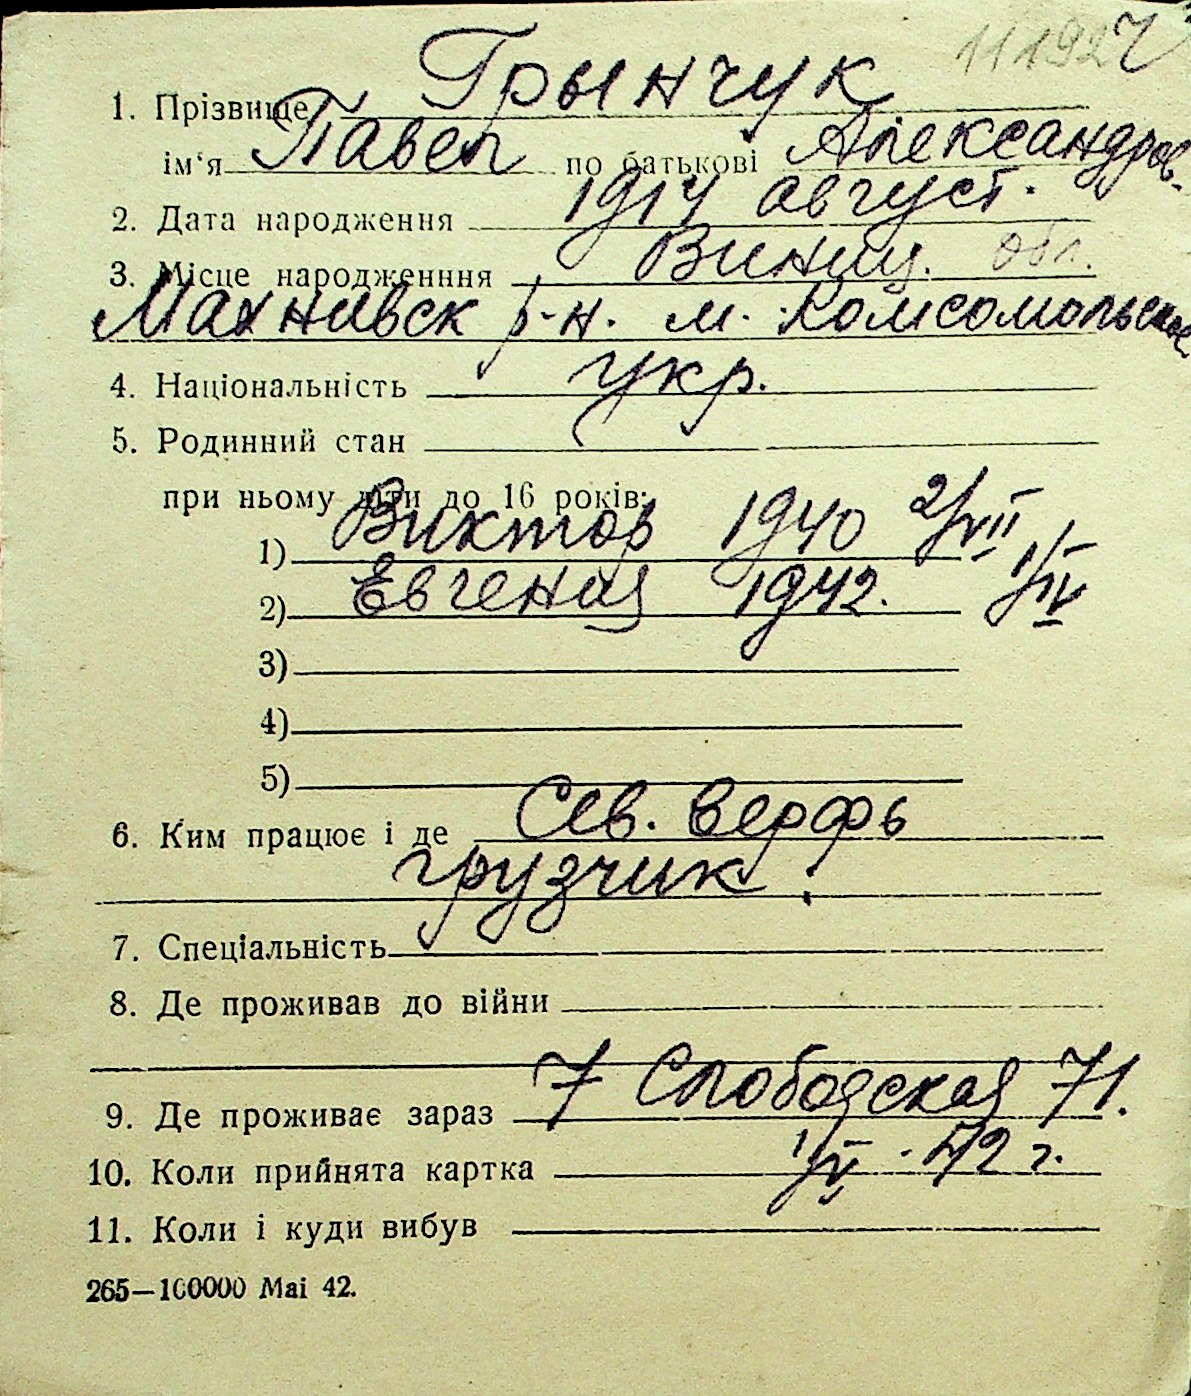 11192
1. Прізвище Грынчук
ім‘я Павел по батькові Александров.
2. Дата народження 1914 август.
3. Місце народженння Винниц. обл.
Махнивск р-н. м. Комсомольское
4. Національність укр.
5. Родинний стан
при ньому діти до 16 років:
1) Виктор 1940 2/VII
2) Евгения 1942. 1/IV
3)
4)
5)
6. Ким працює і де Сев. верфь
грузчик.
7. Спеціальність
8. Де проживав до війни
9. Де проживає зараз 7 Слободская 71.
10. Коли прийнята картка 1/V - 42 г.
11. Коли і куди вибув
265—100000 Mai 42.